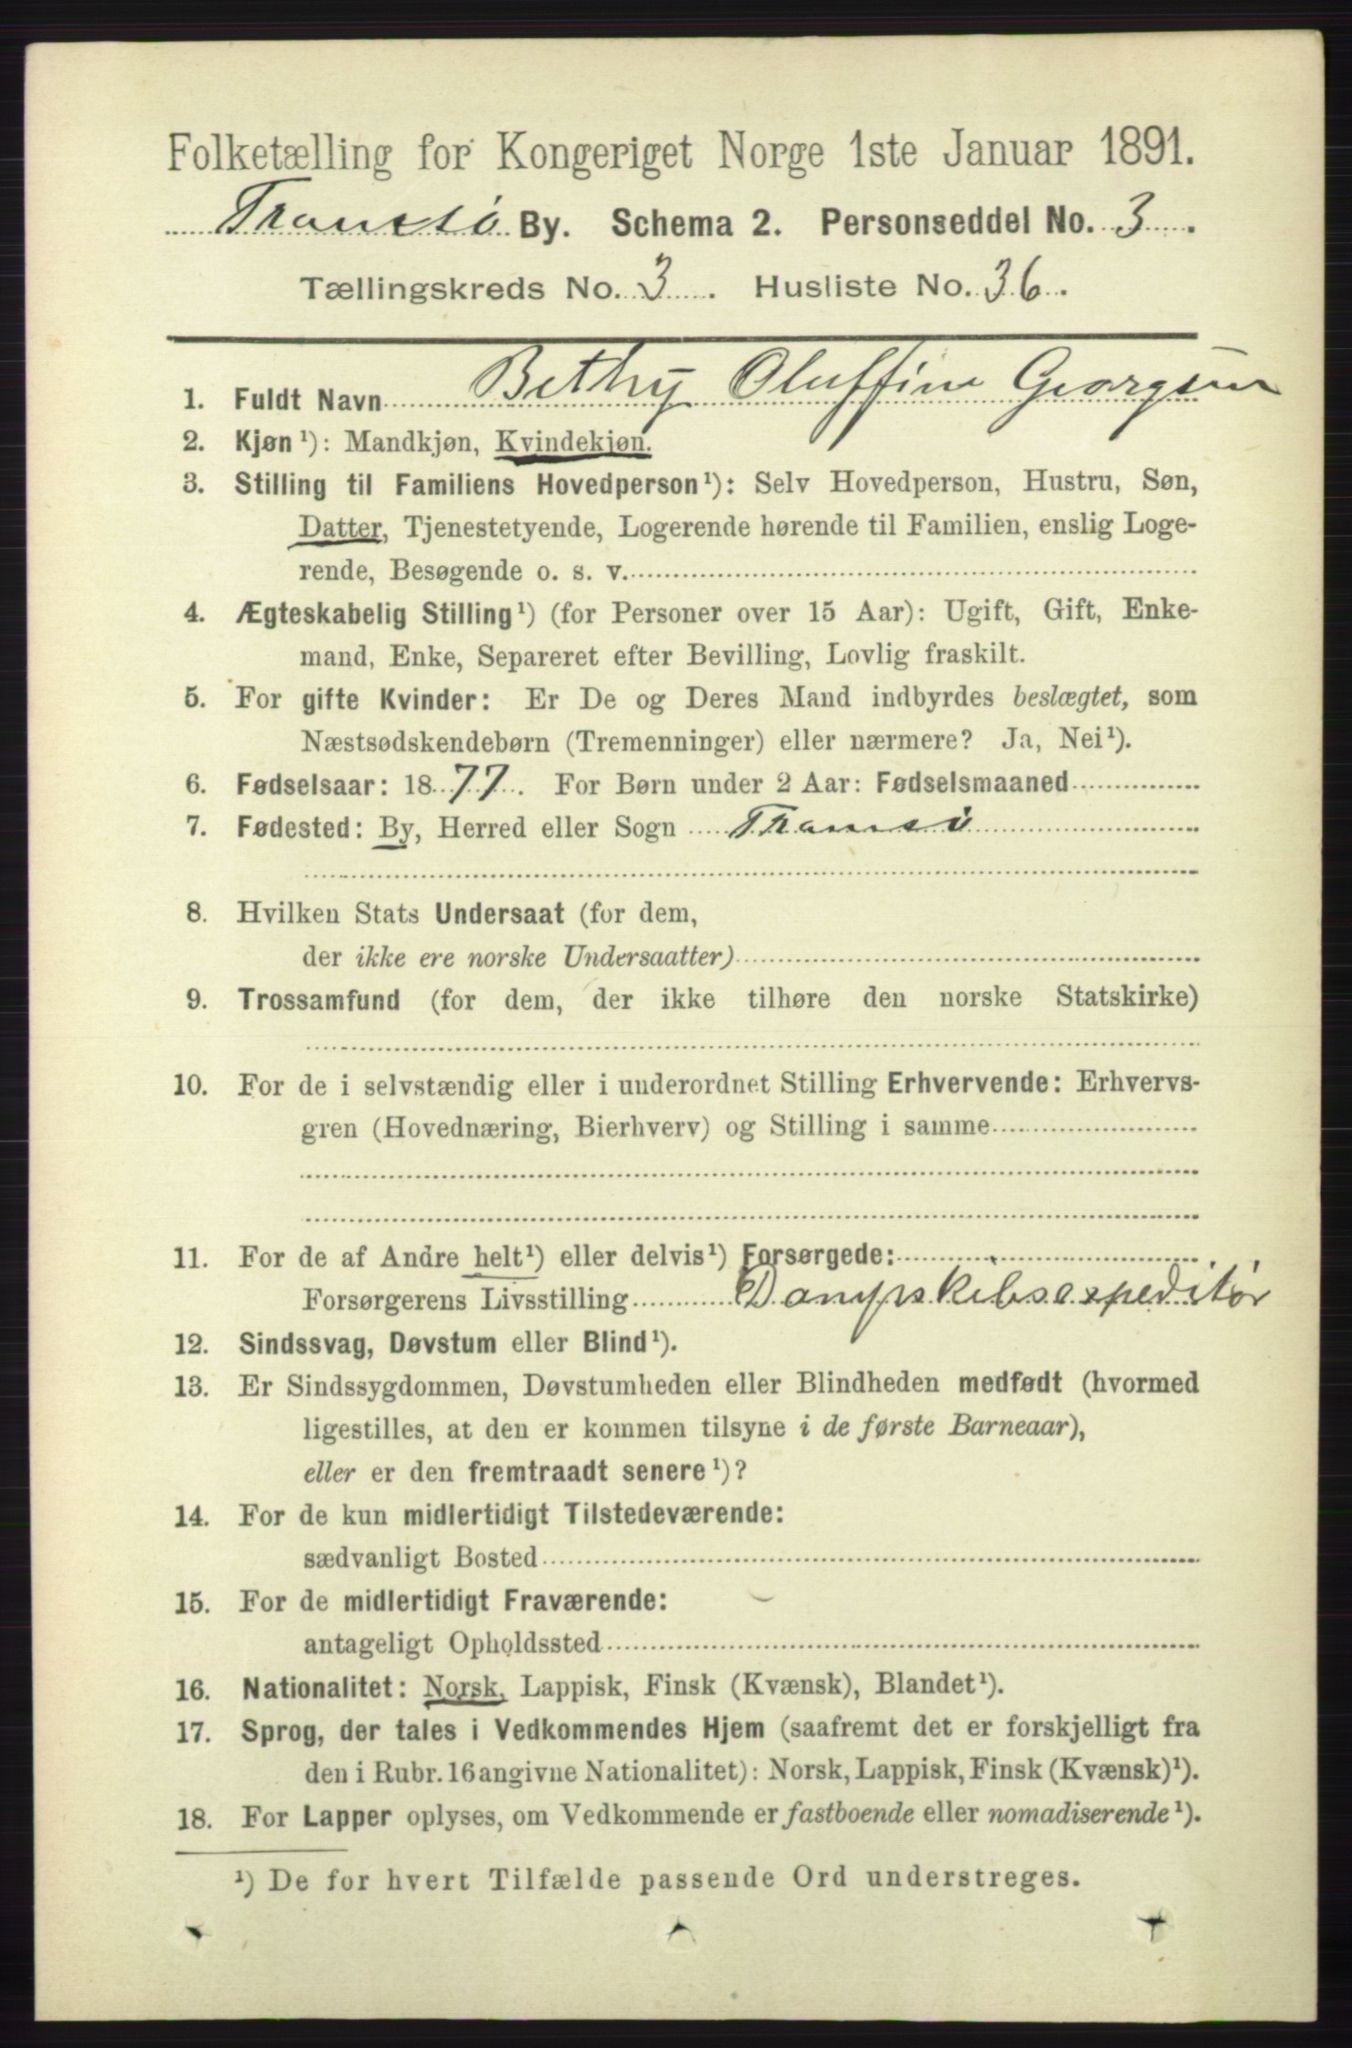 Folketælling for Kongeriget Norge 1ste Januar 1891.
Tromsø By. Schema 2. Personseddel No. 3.
Tællingskreds No. 3. Husliste No. 36.
1. Fuldt Navn Bethy Oluffine Georgsen
2. Kjøn ¹): Mandkjøn, Kvindekjøn.
3. Stilling til Familiens Hovedperson ¹): Selv Hovedperson, Hustru, Søn,
Datter, Tjenestetyende, Logerende hørende til Familien, enslig Loge-
rende, Besøgende o. s. v.
4. Ægteskabelig Stilling ¹) (for Personer over 15 Aar): Ugift, Gift, Enke-
mand, Enke, Separeret efter Bevilling, Lovlig fraskilt.
5. For gifte Kvinder: Er De og Deres Mand indbyrdes beslægtet, som
Næstsødskendebørn (Tremenninger) eller nærmere? Ja, Nei ¹).
6. Fødselsaar: 1877. For Børn under 2 Aar: Fødselsmaaned
7. Fødested: By, Herred eller Sogn Tromsø
8. Hvilken Stats Undersaat (for dem,
der ikke ere norske Undersaatter)
9. Trossamfund (for dem, der ikke tilhøre den norske Statskirke)
10. For de i selvstændig eller i underordnet Stilling Erhvervende: Erhvervs-
gren (Hovednæring, Bierhverv) og Stilling i samme
11. For de af Andre helt ¹) eller delvis ¹) Forsørgede:
Forsørgerens Livsstilling Dampskibsexpeditør
12. Sindssvag, Døvstum eller Blind ¹).
13. Er Sindssygdommen, Døvstumheden eller Blindheden medfødt (hvormed
ligestilles, at den er kommen tilsyne i de første Barneaar),
eller er den fremtraadt senere ¹)?
14. For de kun midlertidigt Tilstedeværende:
sædvanligt Bosted
15. For de midlertidigt Fraværende:
antageligt Opholdssted
16. Nationalitet: Norsk, Lappisk, Finsk (Kvænsk), Blandet ¹).
17. Sprog, der tales i Vedkommendes Hjem (saafremt det er forskjelligt fra
den i Rubr. 16 angivne Nationalitet): Norsk, Lappisk, Finsk (Kvænsk) ¹).
18. For Lapper oplyses, om Vedkommende er fastboende eller nomadiserende ¹).
¹) De for hvert Tilfælde passende Ord understreges.